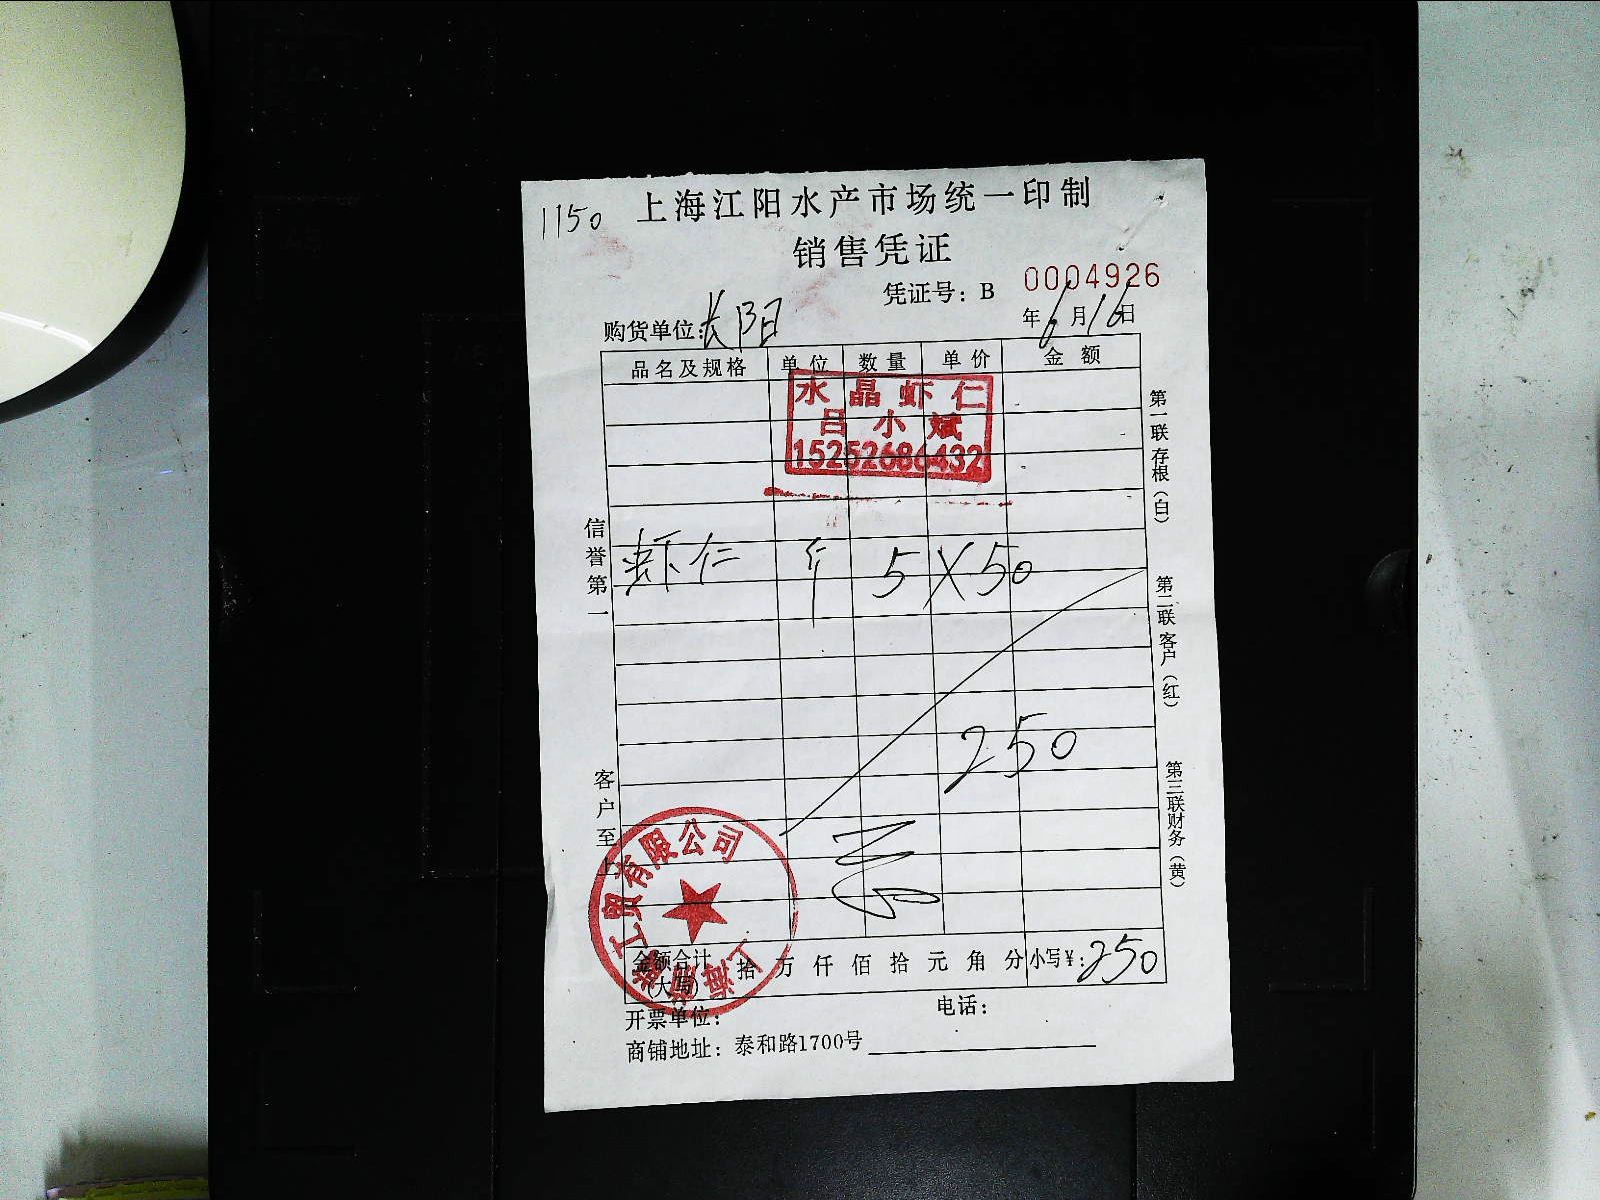 1150 上海江阳水产市场统一印制
销售凭证
凭证号：B 0004926
购货单位：长阳 年6月16日
品名及规格 单位 数量 单价 金额
水晶虾仁
吕小斌
15252686432
虾仁 斤 5 X 50
250
金额合计(大写) 拾 万 仟 佰 拾 元 角 分 小写￥：250
开票单位： 电话：
商铺地址：泰和路1700号
信誉第一
客户至上
第一联存根（白）
第二联客户（红）
第三联财务（黄）
工贸有限公司
上海